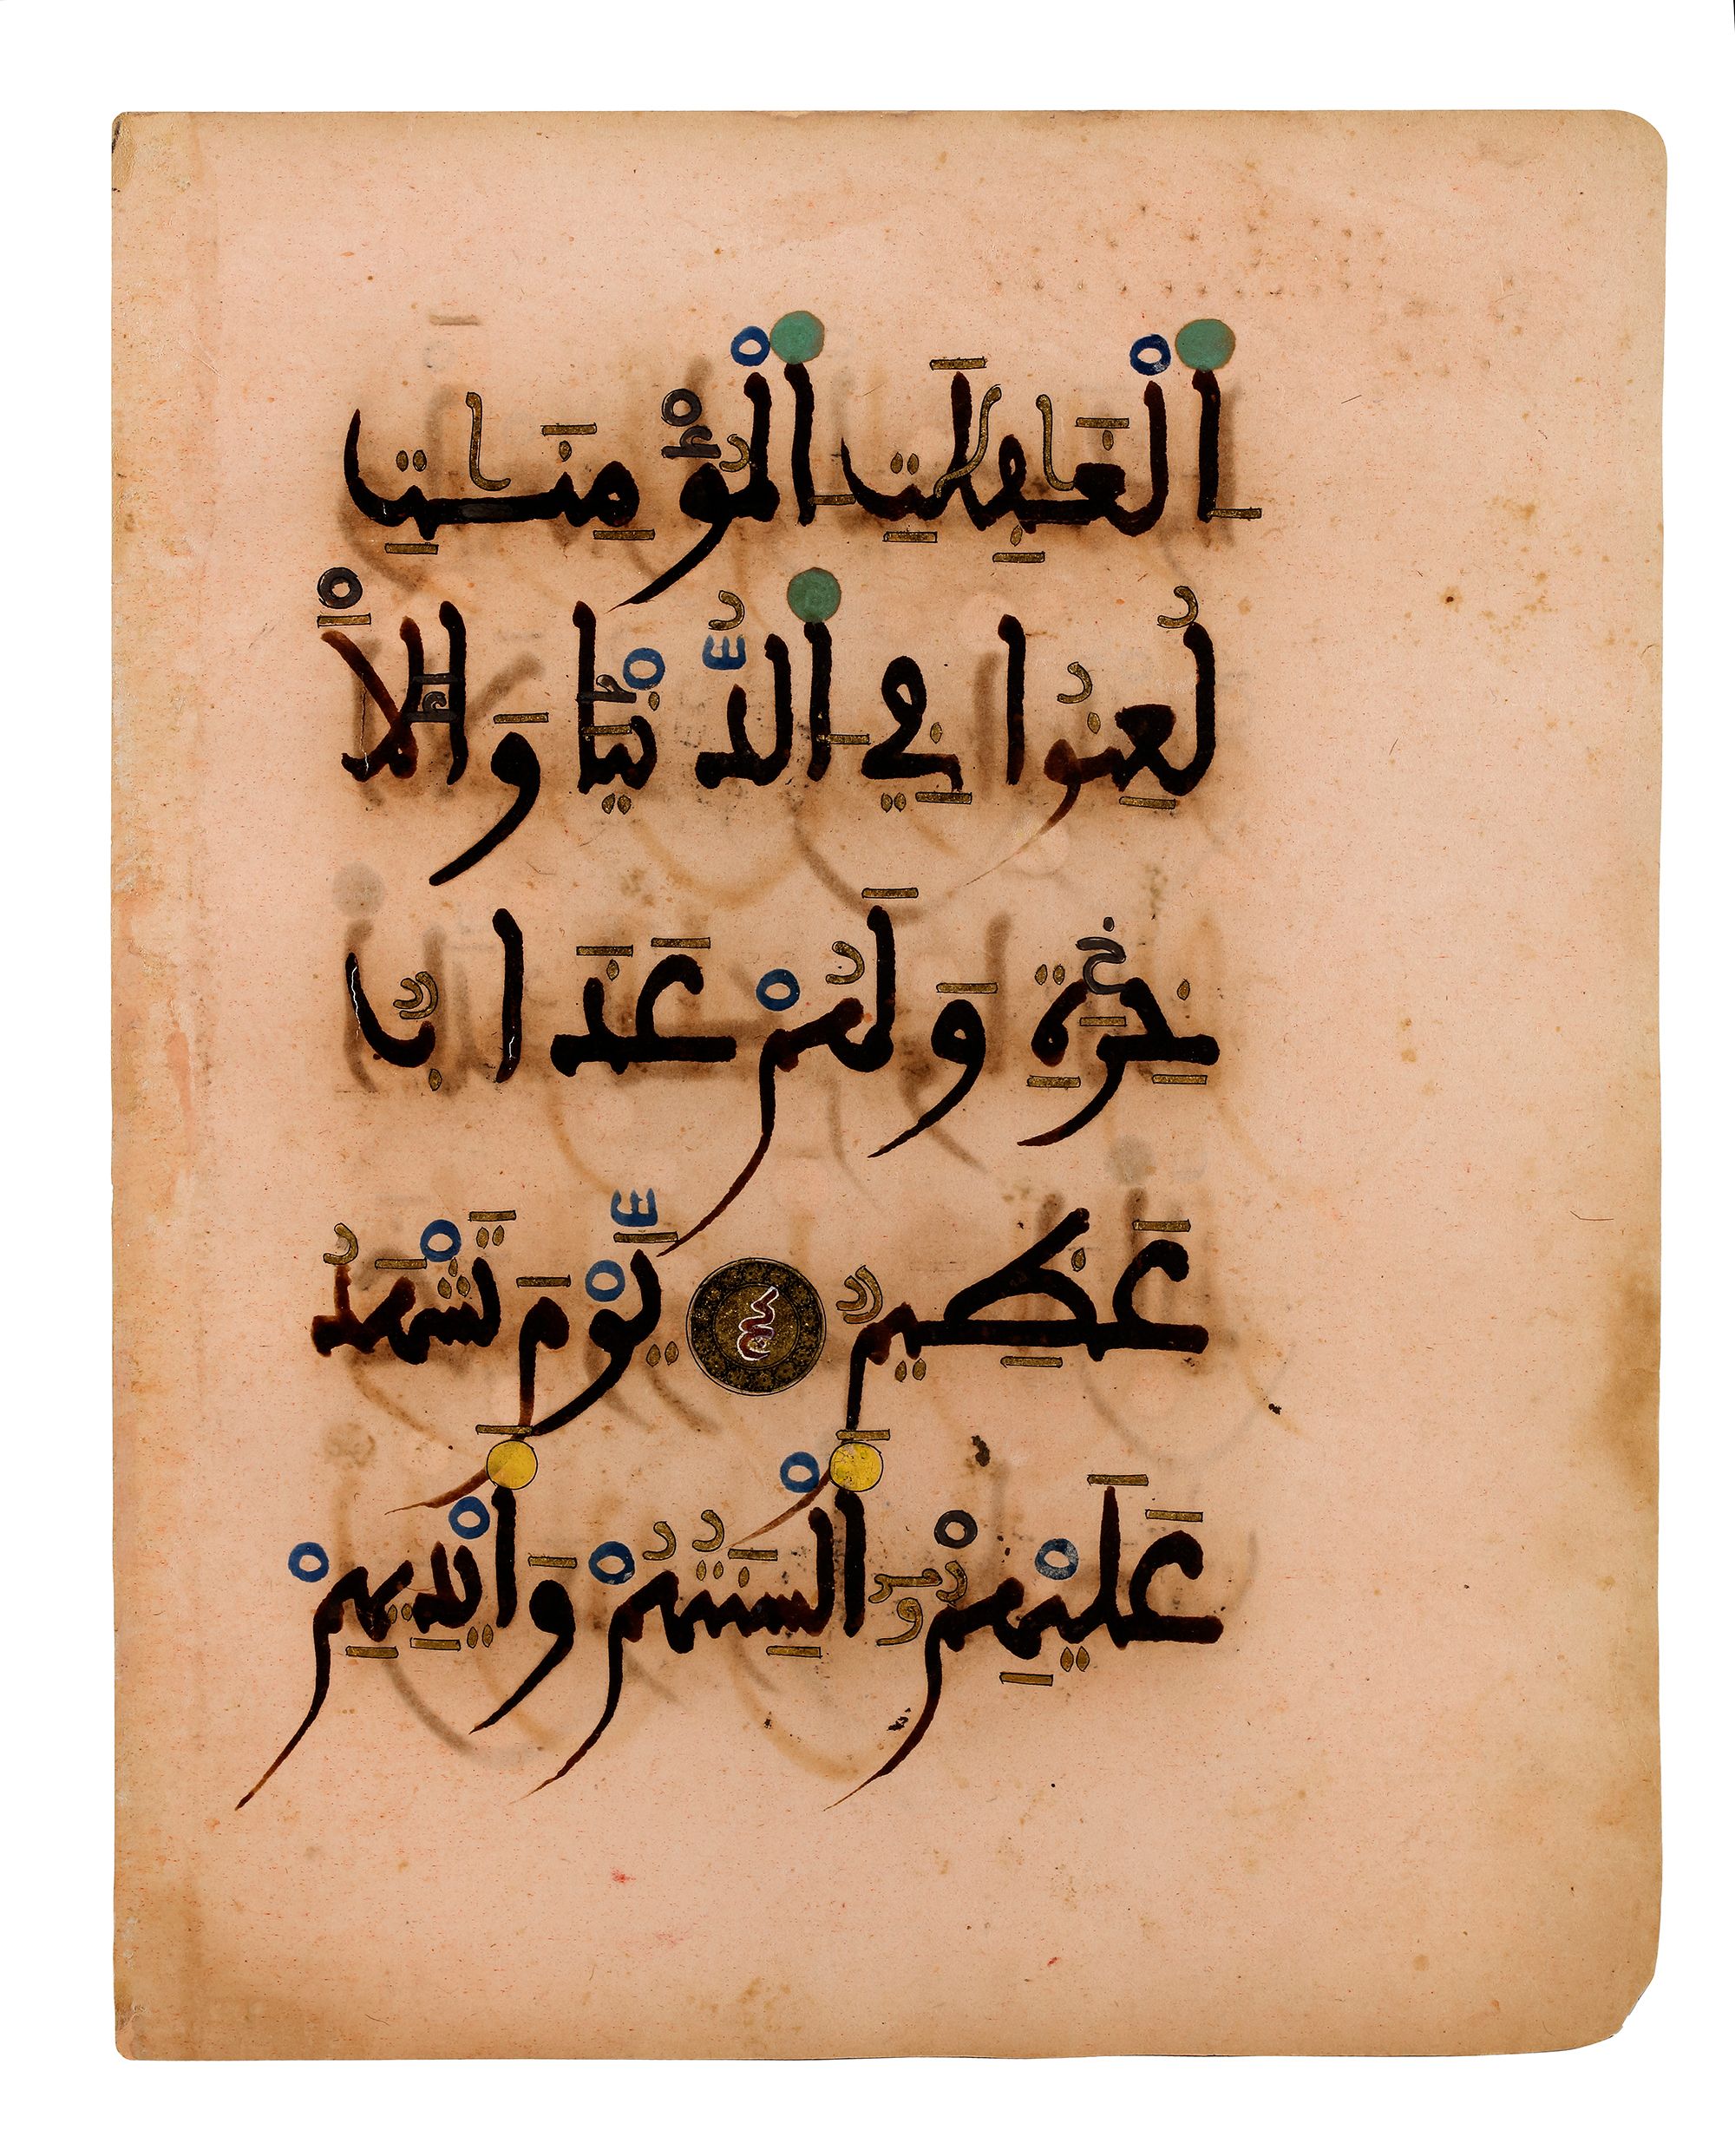 اَ۬لْغَٰفِلَٰتِ اِ۬لْمُؤْمِنَٰتِ
لُعِنُوا فِي اِ۬لدُّنْيَا وَالَا
خِرَةِ وَلَهُمْ عَذَابٌ
عَظِيمٌ يَوْمَ تَشْهَدُ
عَلَيْهِمْ أَلْسِنَتُهُمْ وَأَيْدِيهِمْ